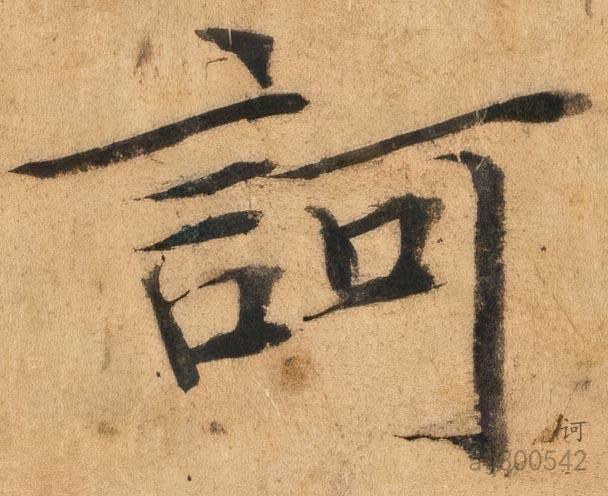 訶
诃
a1300542